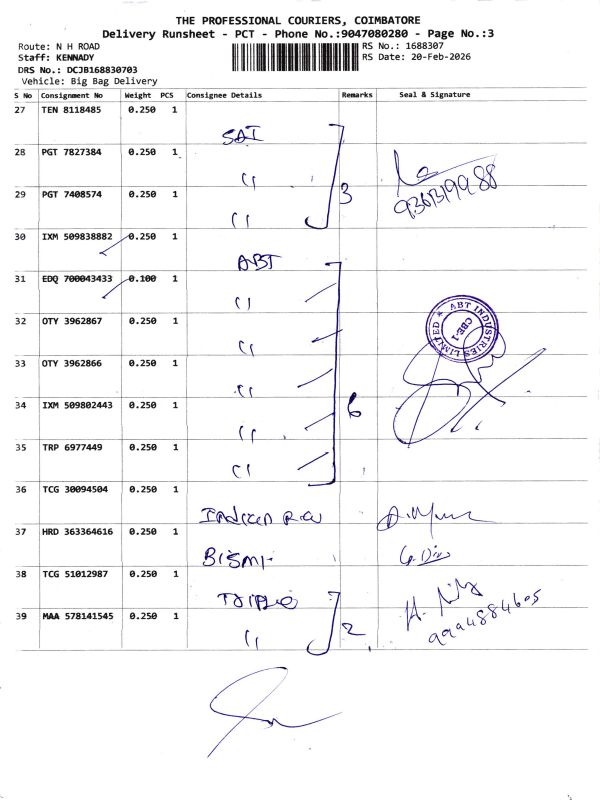 THE PROFESSIONAL COURIERS, COIMBATORE
Delivery Runsheet - PCT - Phone No.:9047080280 - Page No.:3
Route: N H ROAD
RS No.: 1688307
Staff: KENNADY
RS Date: 20-Feb-2026
DRS No.: DCJB168830703
Vehicle: Big Bag Delivery
S No Consignment No Weight PCS Consignee Details Remarks Seal & Signature
27 TEN 8118485 0.250 1
SAI
28 PGT 7827384 0.250 1
" 3
29 PGT 7408574 0.250 1
"
30 IXM 509838882 0.250 1
ABT
31 EDQ 700043433 0.100 1
"
32 OTY 3962867 0.250 1
"
ABT INDUSTRIES LIMITED
CBE-1
33 OTY 3962866 0.250 1
"
34 IXM 509802443 0.250 1
" 6
35 TRP 6977449 0.250 1
"
36 TCG 30094504 0.250 1
37 HRD 363364616 0.250 1
BISMI
38 TCG 51012987 0.250 1
39 MAA 578141545 0.250 1
" 2